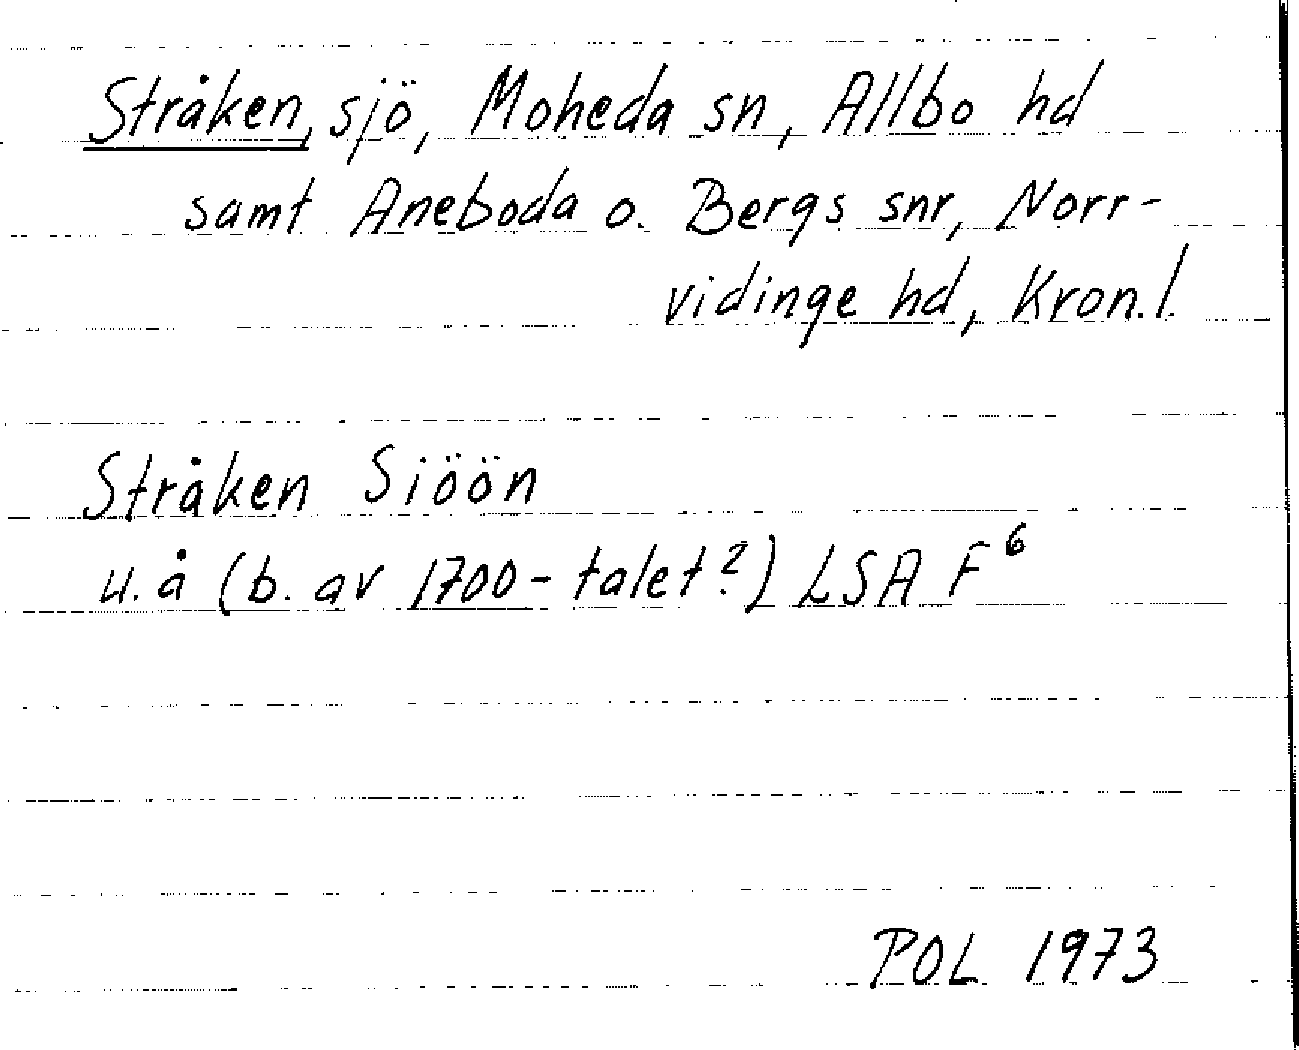 Stråken, sjö, Moheda sn, Allbo hd
samt Aneboda o. Bergs snr, Norr-
vidinge hd, Kron.l.
Stråken Siöön
u.å (b. av 1700-talet?) LSA F⁶
POL 1973